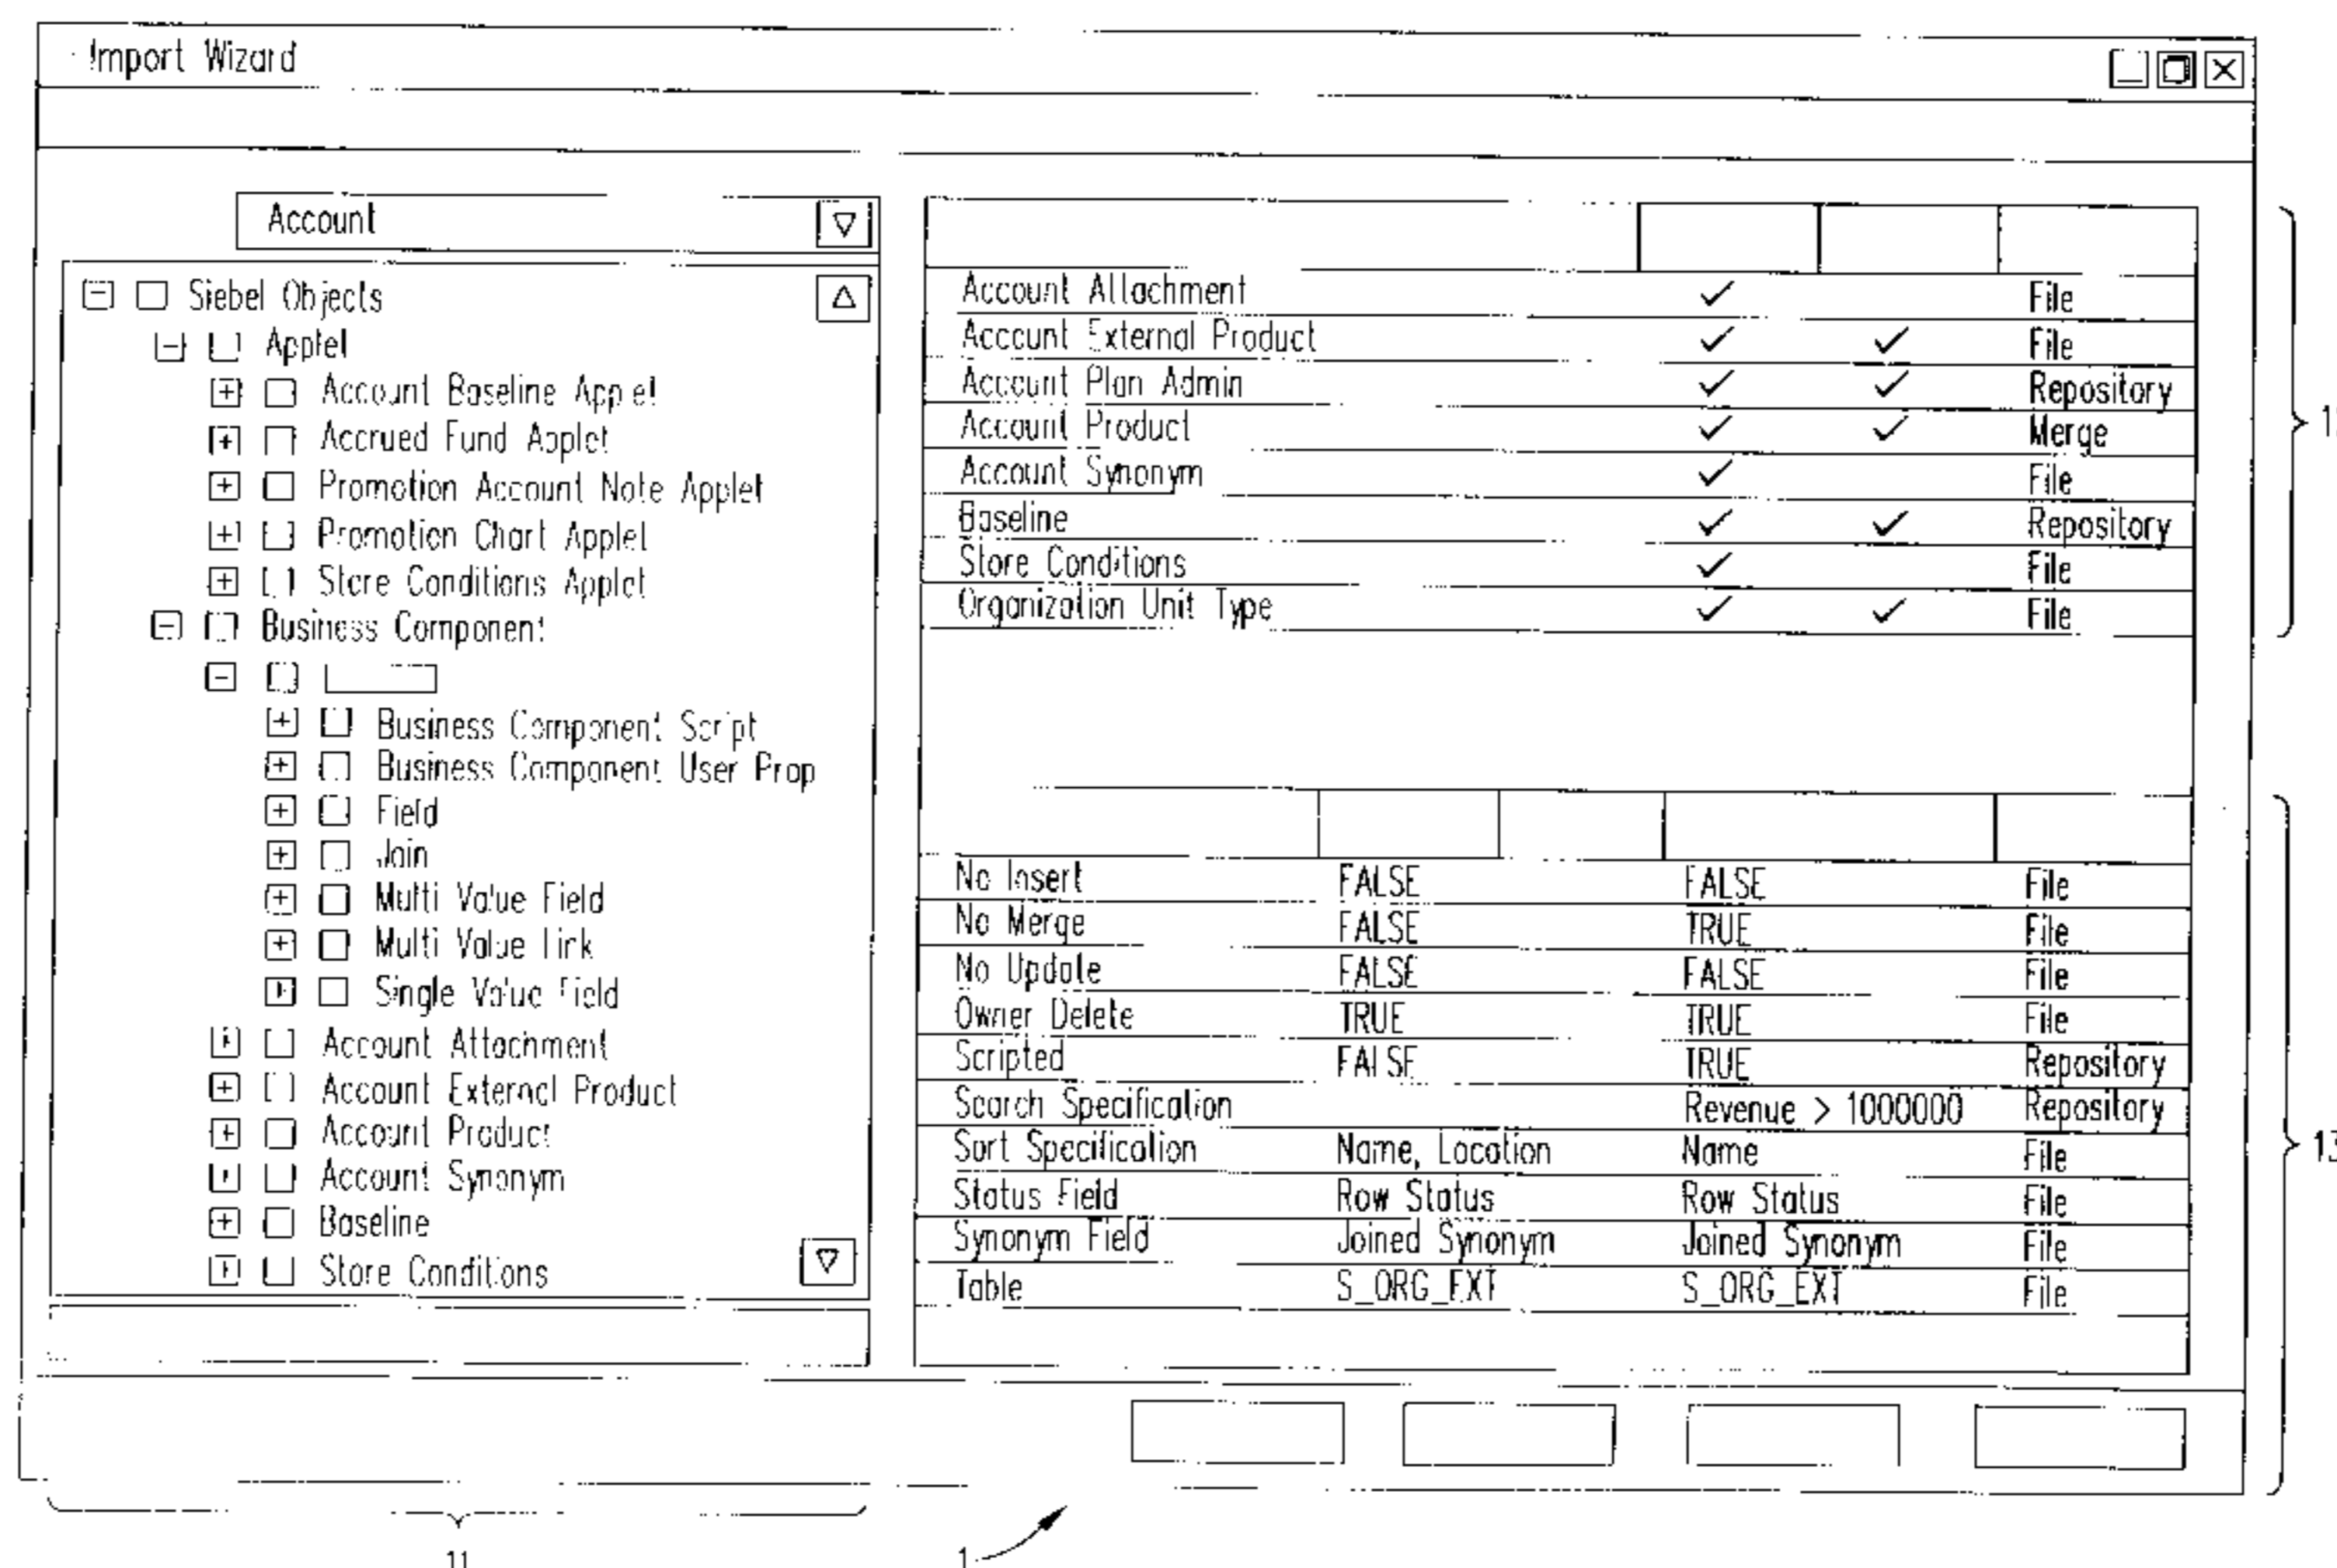 Import Wizard
Account
Siebel Objects
Applet
Account Baseline Applet
Accrued Fund Applet
Promotion Account Note Applet
Promotion Chart Applet
Store Conditions Applet
Business Component
Business Component Script
Business Component User Prop
Field
Join
Multi Value Field
Multi Value Link
Single Value Field
Account Attachment
Account External Product
Account Product
Account Synonym
Baseline
Store Conditions
Account Attachment ✓ File
Account External Product ✓ ✓ File
Account Plan Admin ✓ ✓ Repository
Account Product ✓ ✓ Merge
Account Synonym ✓ File
Baseline ✓ ✓ Repository
Store Conditions ✓ File
Organization Unit Type ✓ ✓ File
No Insert FALSE FALSE File
No Merge FALSE TRUE File
No Update FALSE FALSE File
Owner Delete TRUE TRUE File
Scripted FALSE TRUE Repository
Search Specification Revenue > 1000000 Repository
Sort Specification Name, Location Name File
Status Field Row Status Row Status File
Synonym Field Joined Synonym Joined Synonym File
Table S_ORG_EXT S_ORG_EXT File
13
11
1